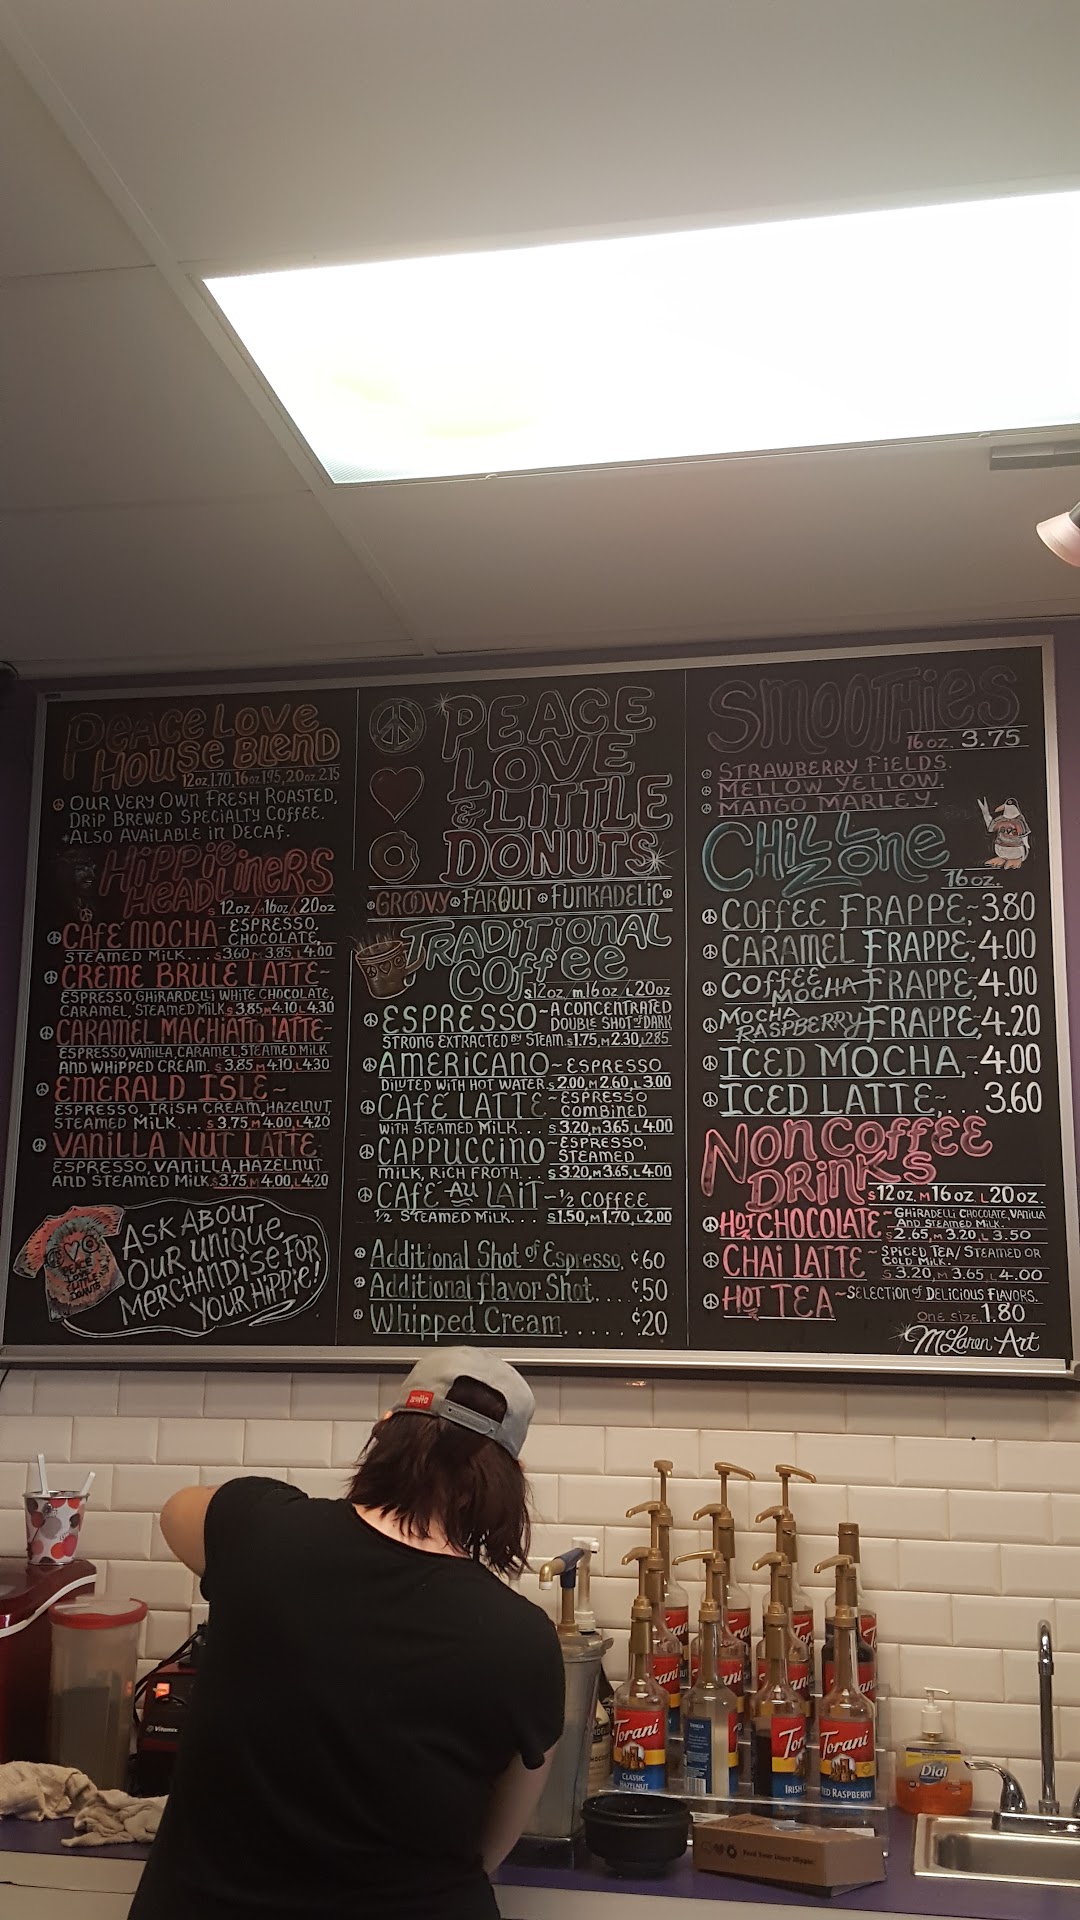 Peace Love
House Blend
12oz 1.70, 16oz 1.95, 20oz 2.15
Our Very Own Fresh Roasted,
Drip Brewed Specialty Coffee.
*Also Available in Decaf.
Hippie
Headliners
S 12oz/M 16oz/L 20oz
Café Mocha~Espresso,
Chocolate,
Steamed Milk...S 3.60 M 3.85 L 4.00
Creme Brule Latte~
Espresso, Ghirardelli White Chocolate,
Caramel, Steamed Milk S 3.85 M 4.10 L 4.30
Caramel Machiatto Latte~
Espresso, Vanilla, Caramel, Steamed Milk
and Whipped Cream. S 3.85 M 4.10 L 4.30
Emerald Isle~
Espresso, Irish Cream, Hazelnut,
Steamed Milk...S 3.75 M 4.00 L 4.20
Vanilla Nut Latte~
Espresso, Vanilla, Hazelnut
and Steamed Milk. S 3.75 M 4.00, L 4.20
Ask About
Our Unique
Merchandise for
Your Hippie!
Peace
Love
& Little
Donuts
Groovy Far Out Funkadelic
Traditional
Coffee
S 12oz/M 16oz/L 20oz
Espresso~A Concentrated
Double Shot of Dark
Strong Extracted by Steam. S 1.75, M 2.30, L 2.85
Americano~Espresso
Diluted with Hot Water. S 2.00 M 2.60, L 3.00
Café Latte~Espresso
Combined
with Steamed Milk... S 3.20, M 3.65, L 4.00
Cappuccino~Espresso,
Steamed
Milk, Rich Froth... S 3.20, M 3.65, L 4.00
Café Au Lait~½ Coffee
½ Steamed Milk... S 1.50, M 1.70, L 2.00
Additional Shot of Espresso. ¢60
Additional flavor Shot.... ¢50
Whipped Cream...... ¢20
Smoothies
16 oz. 3.75
Strawberry Fields.
Mellow Yellow.
Mango Marley.
Chill
Zone
16oz.
Coffee Frappe~3.80
Caramel Frappe~4.00
Coffee Mocha Frappe, 4.00
Mocha Raspberry Frappe, 4.20
Iced Mocha,.4.00
Iced Latte,...3.60
Non Coffee
Drinks
S 12oz. M 16oz L 20oz.
Hot Chocolate~Ghiradelli Chocolate, Vanilla
and Steamed Milk.
S 2.65, M 3.20, L 3.50
Chai Latte~Spiced Tea/Steamed or
Cold Milk.
S 3.20, M 3.65, L 4.00
Hot Tea~Selection of Delicious Flavors.
One Size. 1.80
McLaren Art
Vitamix
Torani
Classic
Hazelnut
Torani
Torani
Dial